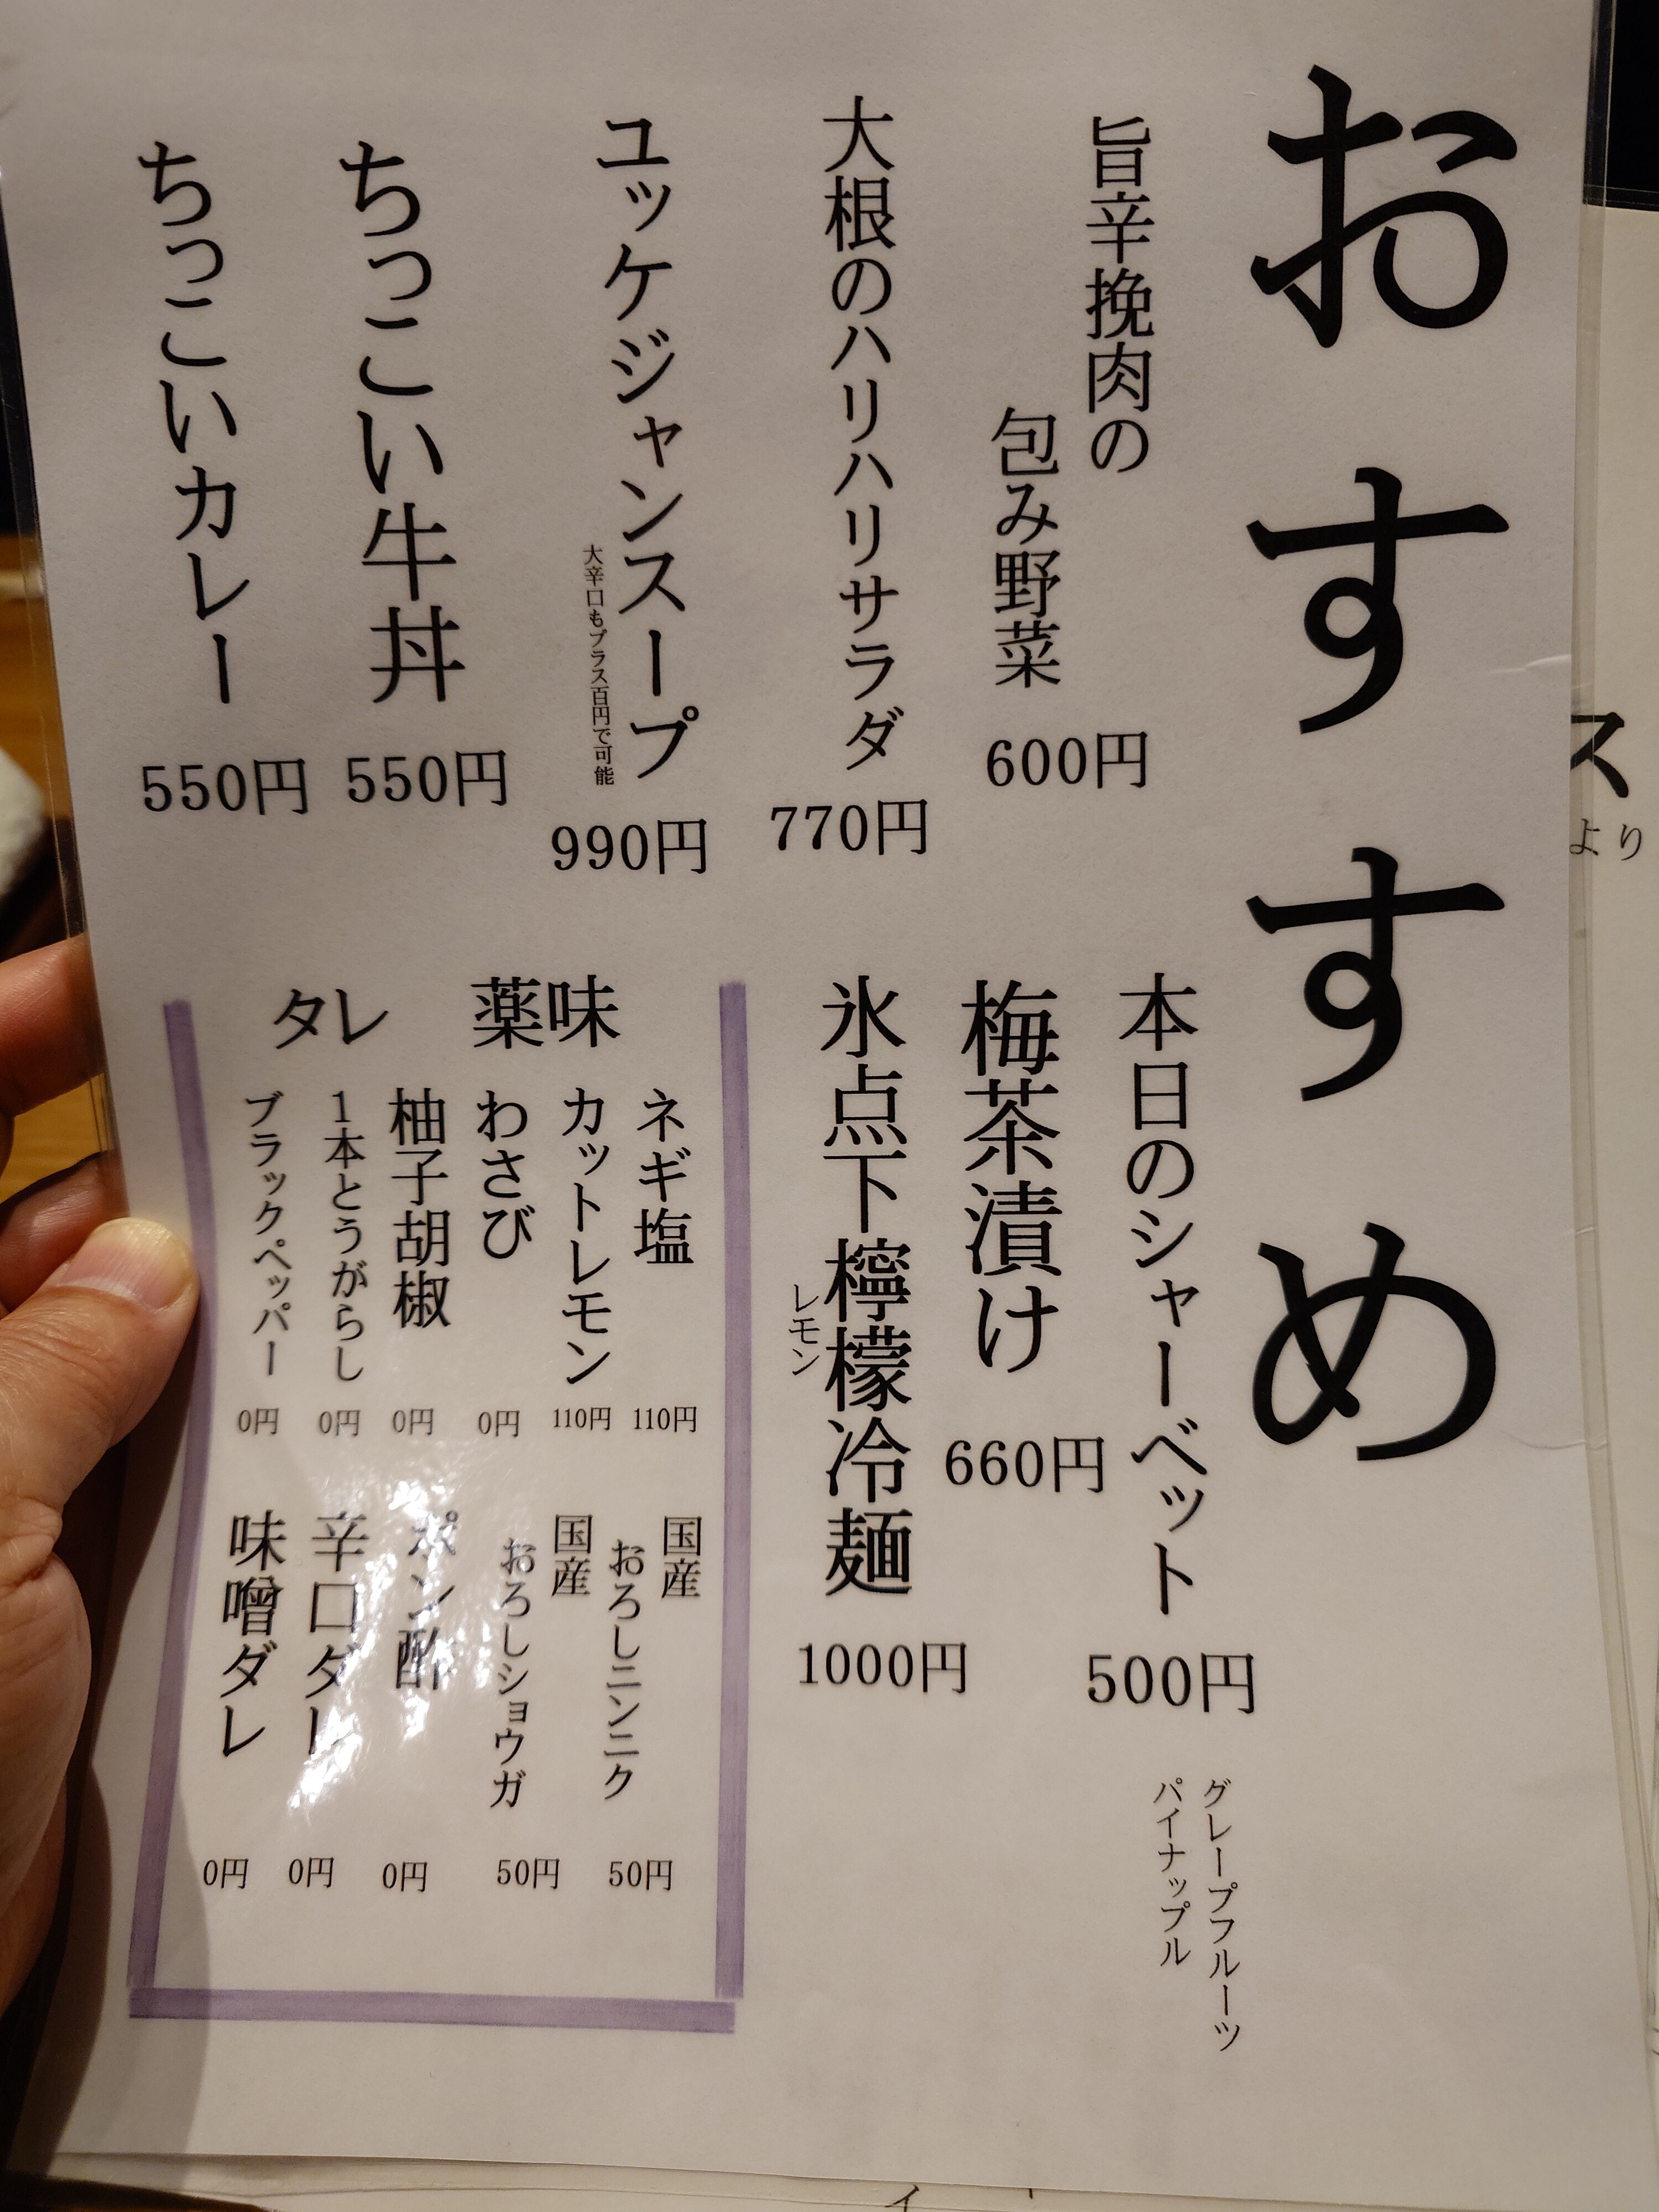 おすすめ
旨辛挽肉の
包み野菜
600円
大根のハリハリサラダ
770円
ユッケジャンスープ
大辛口もプラス百円で可能
990円
ちっこい牛丼
550円
ちっこいカレー
550円
本日のシャーベット
500円
グレープフルーツ
パイナップル
梅茶漬け
660円
氷点下檸檬冷麺
レモン
1000円
薬味
タレ
ネギ塩
110円
カットレモン
110円
わさび
0円
柚子胡椒
0円
1本とうがらし
0円
ブラックペッパー
0円
国産
おろしニンニク
50円
国産
おろしショウガ
50円
ポン酢
0円
辛口ダレ
0円
味噌ダレ
0円
ス
より